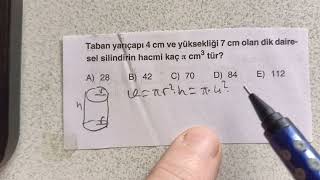 Taban yarıçapı 4 cm ve yüksekliği 7 cm olan dik daire-
sel silindirin hacmi kaç π cm³ tür?
A) 28 B) 42 C) 70 D) 84 E) 112
h r v=πr²h=π.4²
r